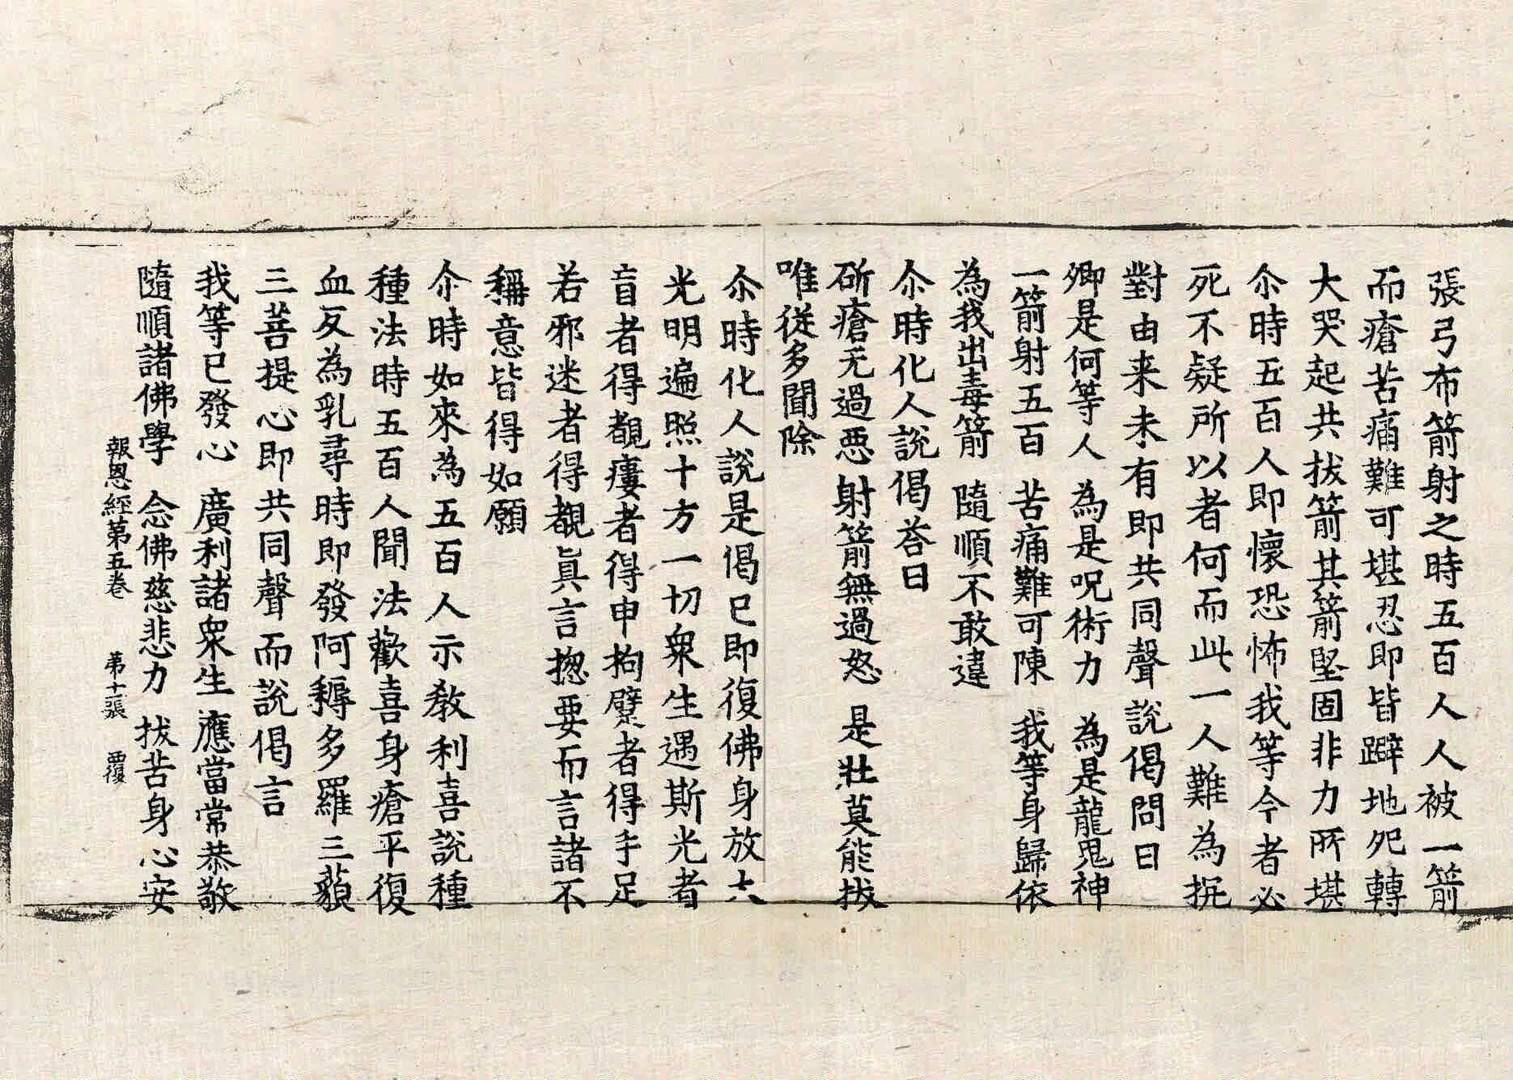 張弓布箭射之時五百人人被一箭
而瘡苦痛難可堪忍即皆躃地宛轉
大哭起共拔箭其箭堅固非力所堪
尒時五百人即懷恐怖我等今者必
死不疑所以者何而此一人難為抗
對由来未有即共同聲說偈問曰
卿是何等人 為是呪術力 為是龍鬼神
一箭射五百 苦痛難可陳 我等身歸依
為我出毒箭 隨順不敢違
尒時化人說偈荅曰
斫瘡无過惡 射箭無過怒 是壯莫能拔
唯從多聞除
尒時化人說是偈已即復佛身放大
光明遍照十方一切衆生遇斯光者
盲者得覩瘻者得申拘躄者得手足
若邪迷者得覩眞言揔要而言諸不
稱意皆得如願
尒時如來為五百人示教利喜說種
種法時五百人聞法歡喜身瘡平復
血反為乳尋時即發阿耨多羅三藐
三菩提心即共同聲而說偈言
我等已發心 廣利諸衆生 應當常恭敬
隨順諸佛學 念佛慈悲力 拔苦身心安
報恩經第五卷 第十張 覆